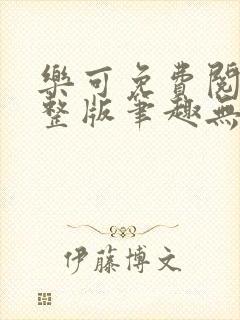 樂可免費閱
整版筆趣無
伊藤博文